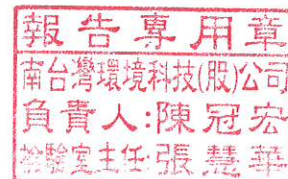 報告專用章
南台灣環境科技(股)公司
負責人:陳冠宏
檢驗室主任:張慧華